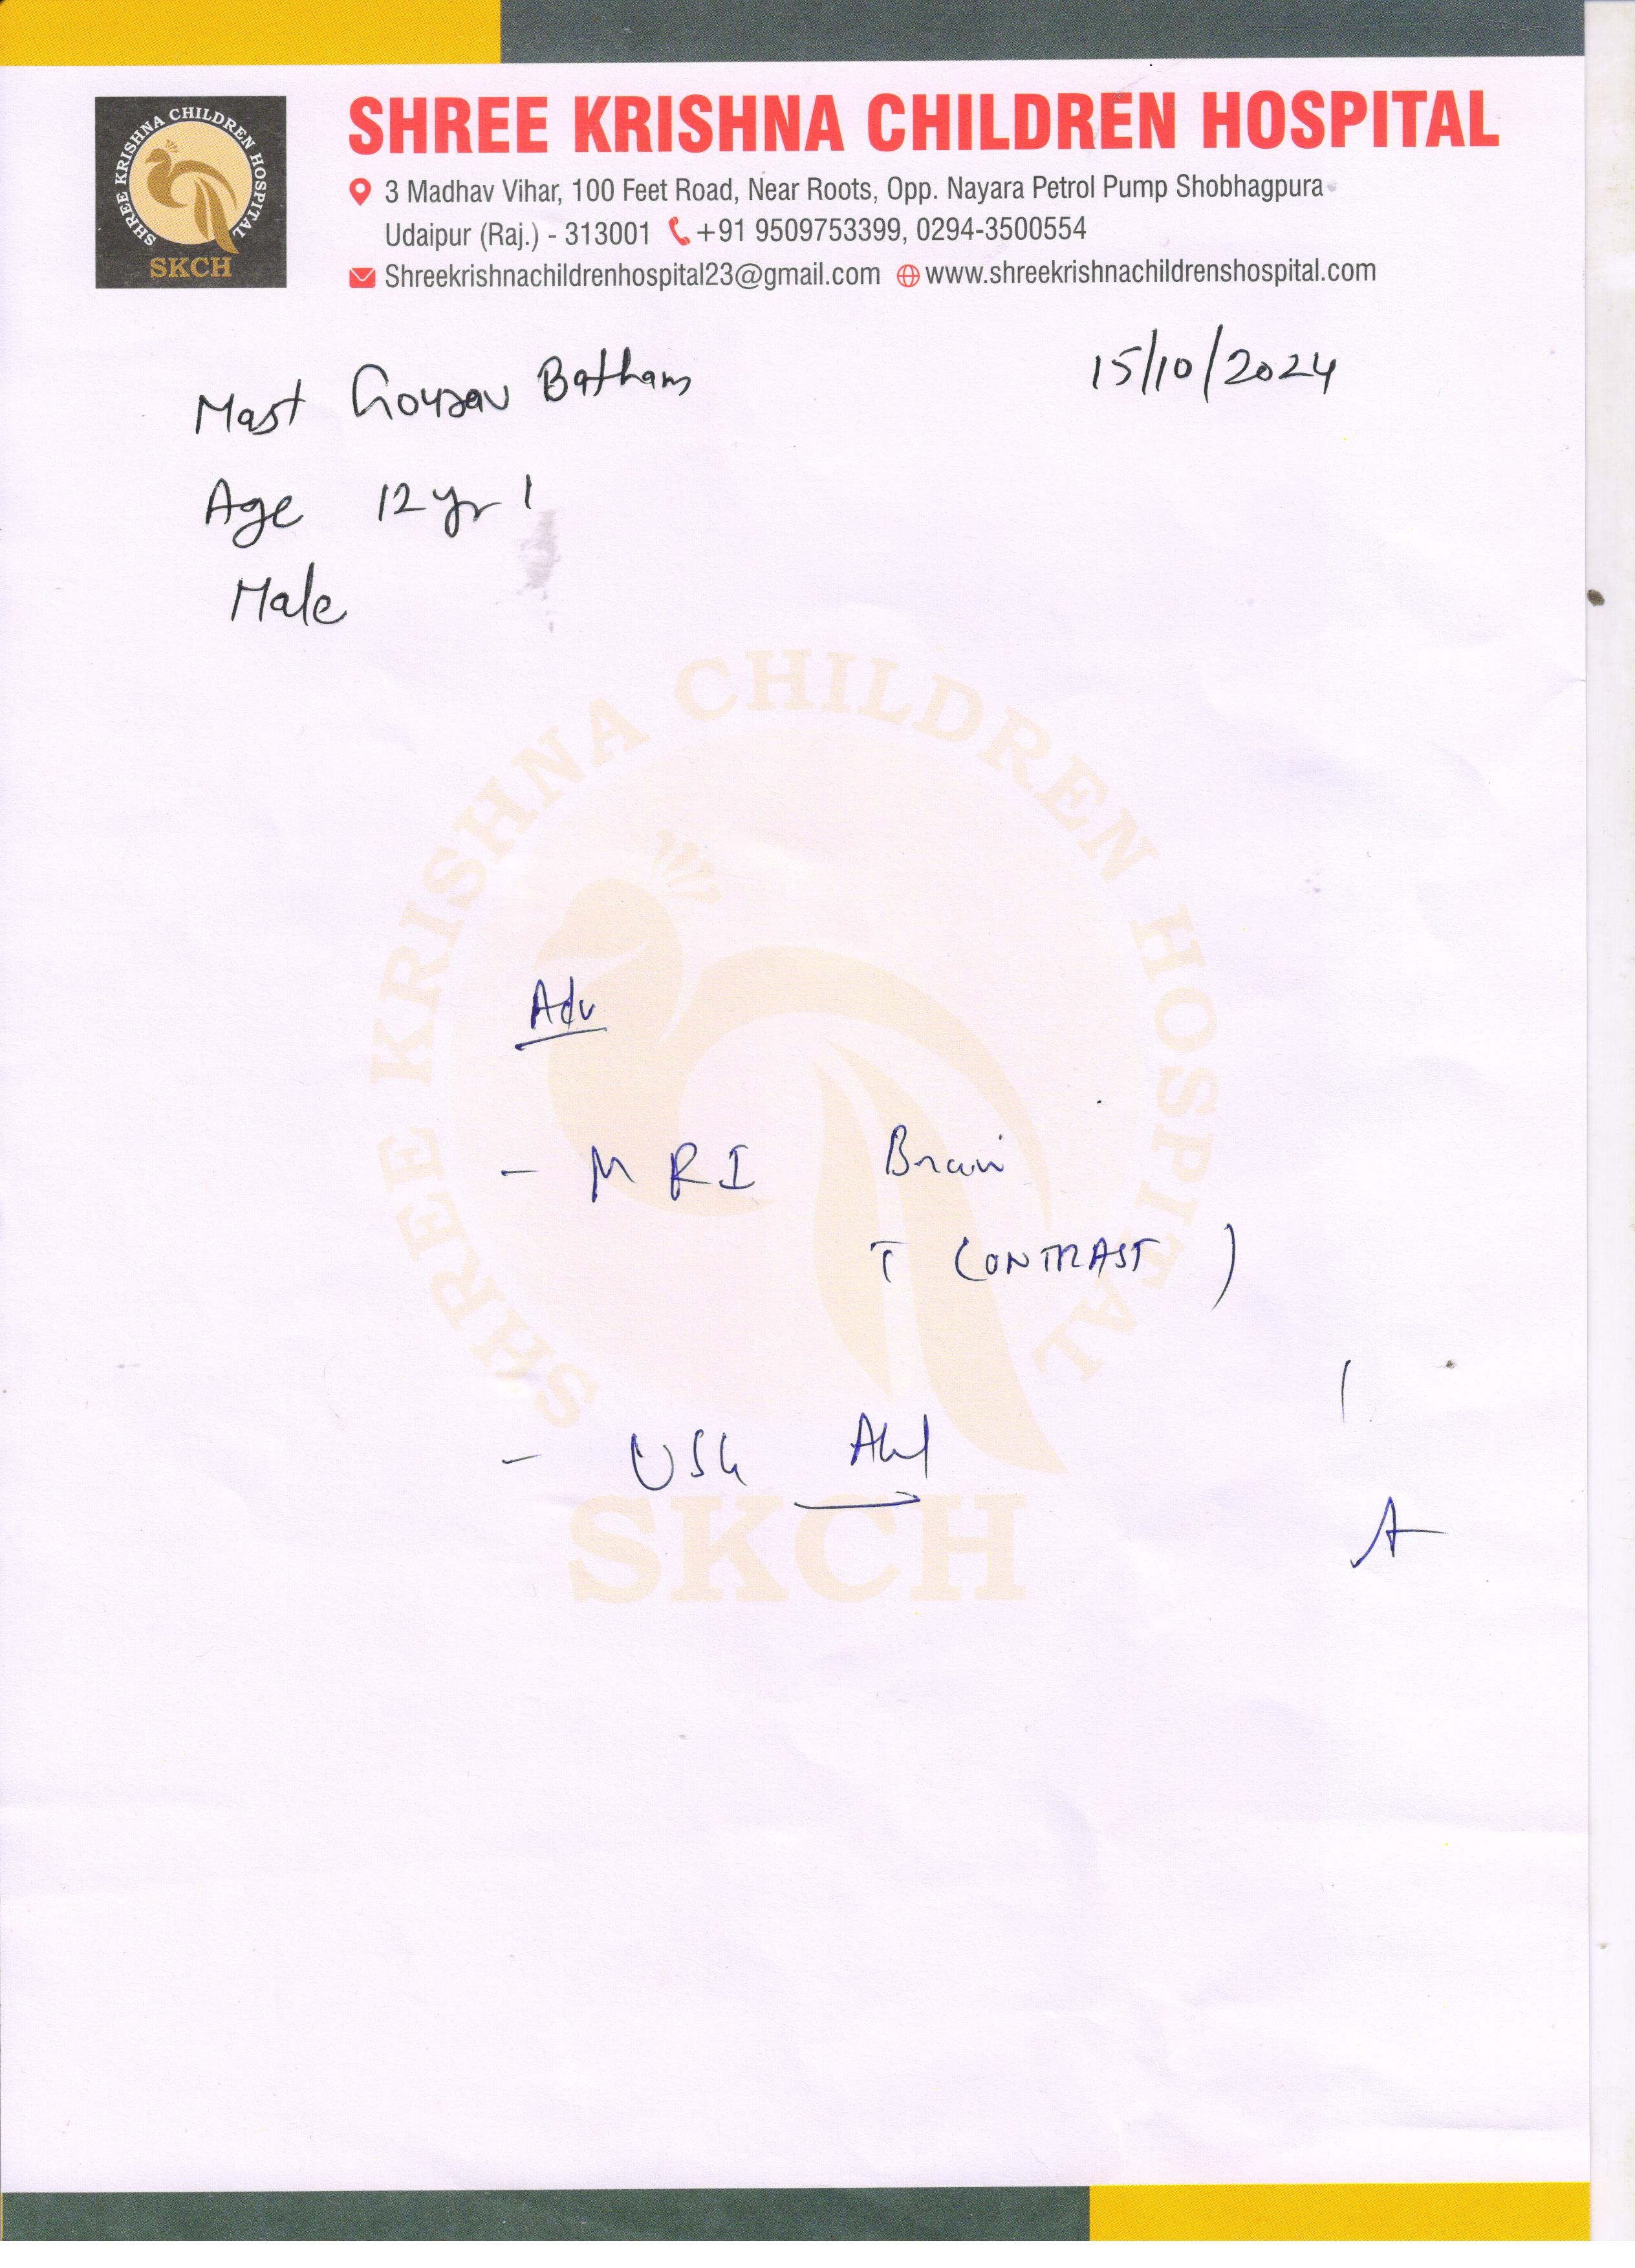 SHREE KRISHNA CHILDREN HOSPITAL
SHREE KRISHNA CHILDREN HOSPITAL
SKCH
3 Madhav Vihar, 100 Feet Road, Near Roots, Opp. Nayara Petrol Pump Shobhagpura
Udaipur (Raj.) - 313001 +91 9509753399, 0294-3500554
Shreekrishnachildrenhospital23@gmail.com www.shreekrishnachildrenshospital.com
Mast Gourav Batham 15/10/2024
Age 12 yr
Male
SHREE KRISHNA CHILDREN HOSPITAL
Adv
- MRI Brain
CONTRAST )
- USG
SKCH